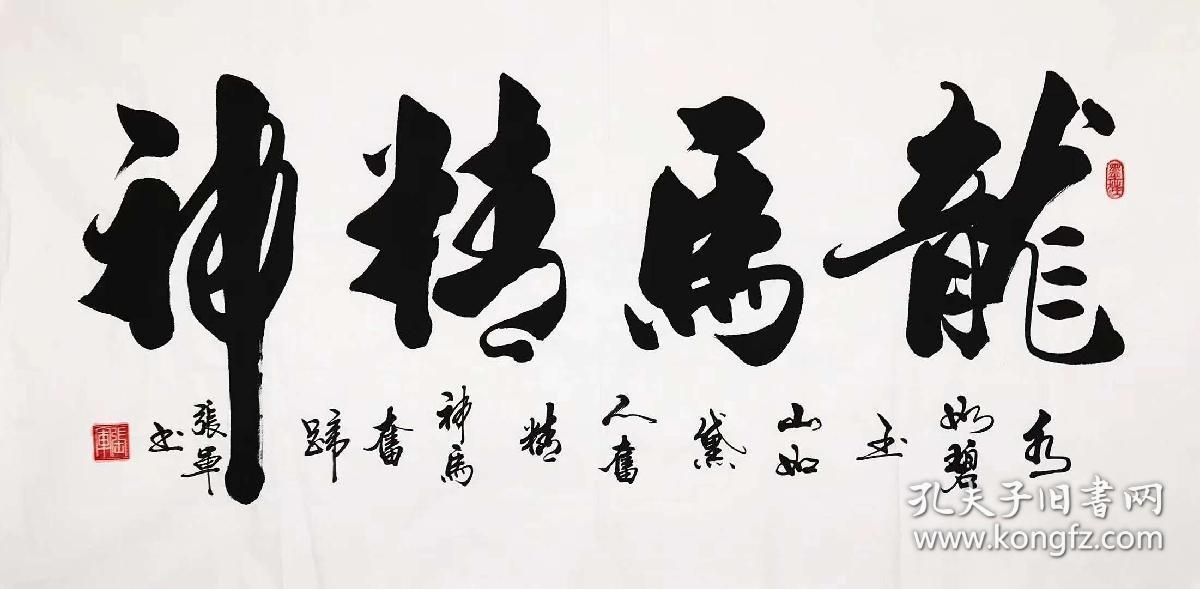 龍馬精神
水如碧玉山如黛人奮精神馬奮蹄
張軍書
張軍
孔夫子旧书网
www.kongfz.com